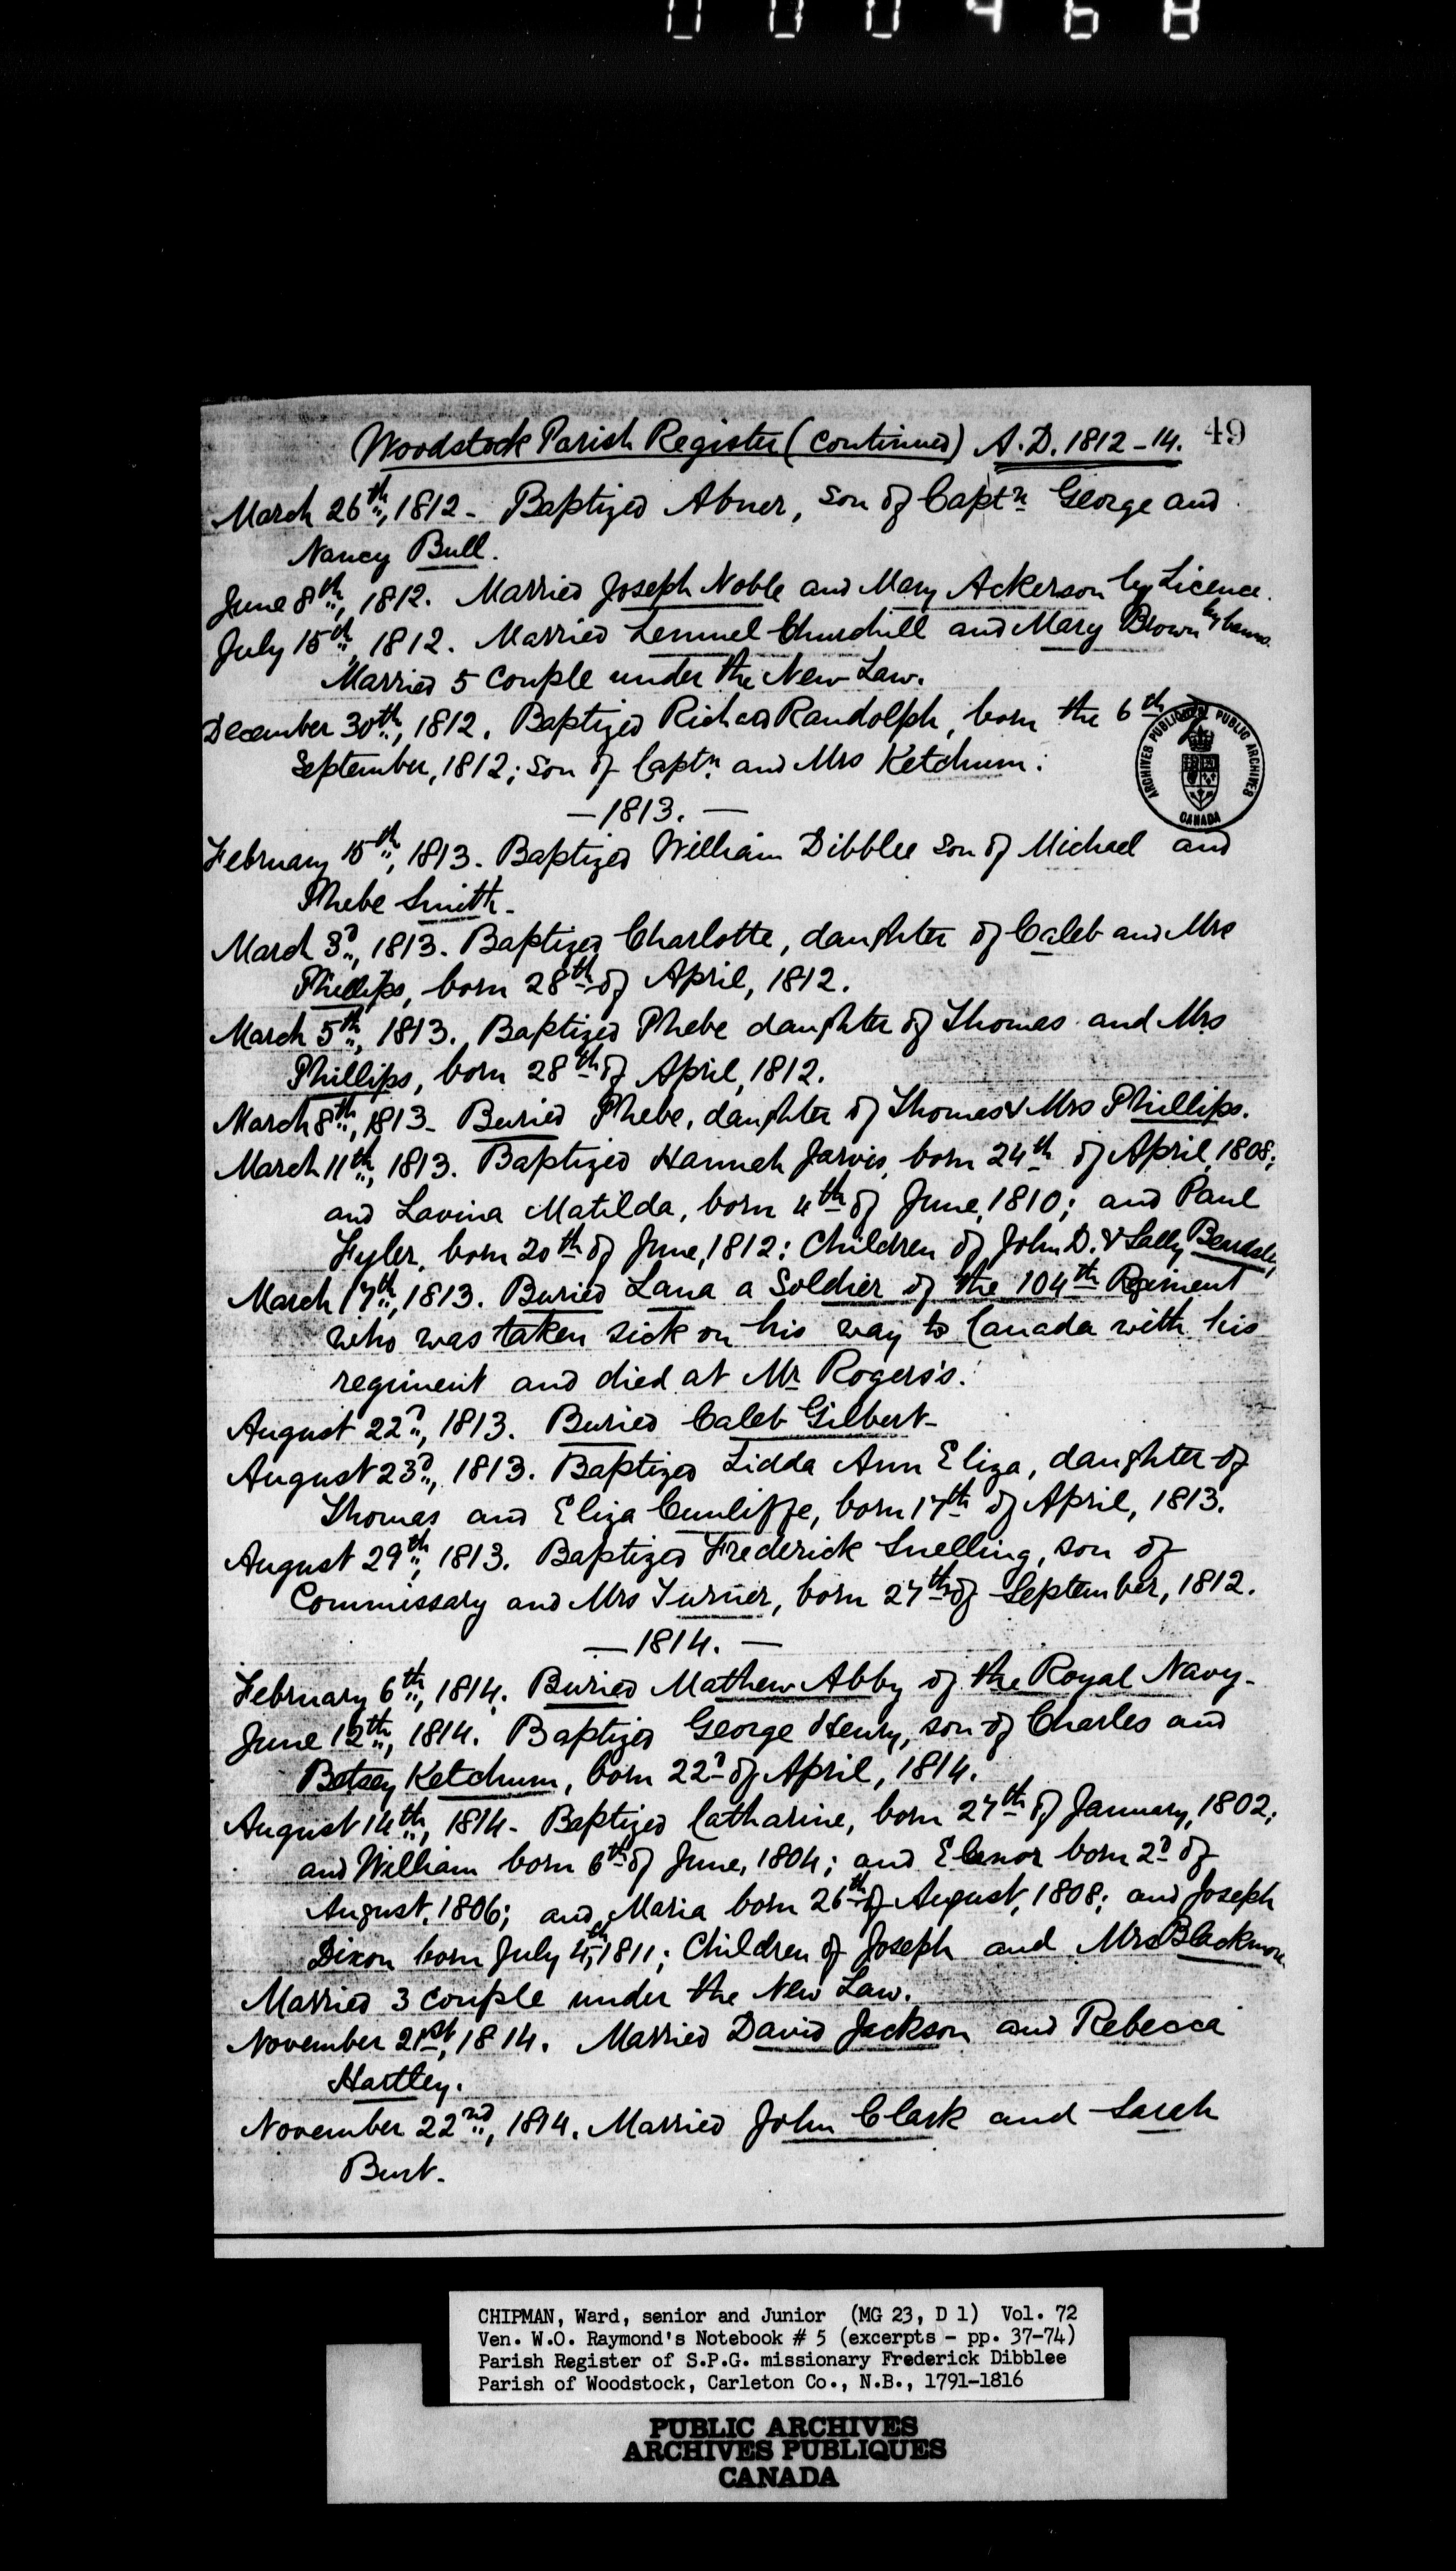 000468
49
Woodstock Parish Register (continued) A.D. 1812-14.
March 26th, 1812 - Baptized Abner, son of Captn George and
Nancy Bull.
June 8th, 1812. Married Joseph Noble and Mary Ackerson by Licence.
July 15th, 1812. Married Lemuel Churchill and Mary Brown by banns.
Married 5 Couple under the New Law.
December 30th, 1812. Baptized Richard Randolph, born the 6th
September, 1812; son of Captn and Mrs Ketchum.
ARCHIVES PUBLIQUES PUBLIC ARCHIVES
CANADA
- 1813. -
February 15th, 1813. Baptized William Dibblee son of Michael and
Phebe Smith.
March 3d, 1813. Baptized Charlotte, daughter of Caleb and Mrs
Phillips, born 28th of April, 1812.
March 5th, 1813. Baptized Phebe daughter of Thomas and Mrs
Phillips, born 28th of April, 1812.
March 8th, 1813 - Buried Phebe, daughter of Thomas & Mrs Phillips.
March 11th, 1813. Baptized Hannah Jarvis, born 24th of April, 1808;
and Lavina Matilda, born 4th of June, 1810; and Paul
Fyler, born 20th of June, 1812: Children of John D. & Sally Beardsley
March 17th, 1813. Buried Lana a Soldier of the 104th Regiment
who was taken sick on his way to Canada with his
regiment and died at Mr Rogers's.
August 22d, 1813. Buried Caleb Gilbert -
August 23d, 1813. Baptized Lidda Ann Eliza, daughter of
Thomas and Eliza Cunliffe, born 17th of April, 1813.
August 29th, 1813. Baptized Frederick Snelling, son of
Commissary and Mrs Turner, born 27th of September, 1812.
- 1814. -
February 6th, 1814. Buried Mathew Abby of the Royal Navy -
June 12th, 1814. Baptized George Henry, son of Charles and
Betsey Ketchum, born 22d of April, 1814.
August 14th, 1814 - Baptized Catharine, born 27th of January, 1802;
and William born 6th of June, 1804; and Elenor born 2d of
August, 1806; and Maria born 26th of August, 1808; and Joseph
Dixon born July 4th, 1811; Children of Joseph and Mrs Blackmore
Married 3 couple under the New Law.
November 21st, 1814. Married David Jackson and Rebecca
Hartley.
November 22nd, 1814. Married John Clark and Sarah
Burt.
CHIPMAN, Ward, senior and Junior (MG 23, D 1) Vol. 72
Ven. W.O. Raymond's Notebook # 5 (excerpts - pp. 37-74)
Parish Register of S.P.G. missionary Frederick Dibblee
Parish of Woodstock, Carleton Co., N.B., 1791-1816
PUBLIC ARCHIVES
ARCHIVES PUBLIQUES
CANADA